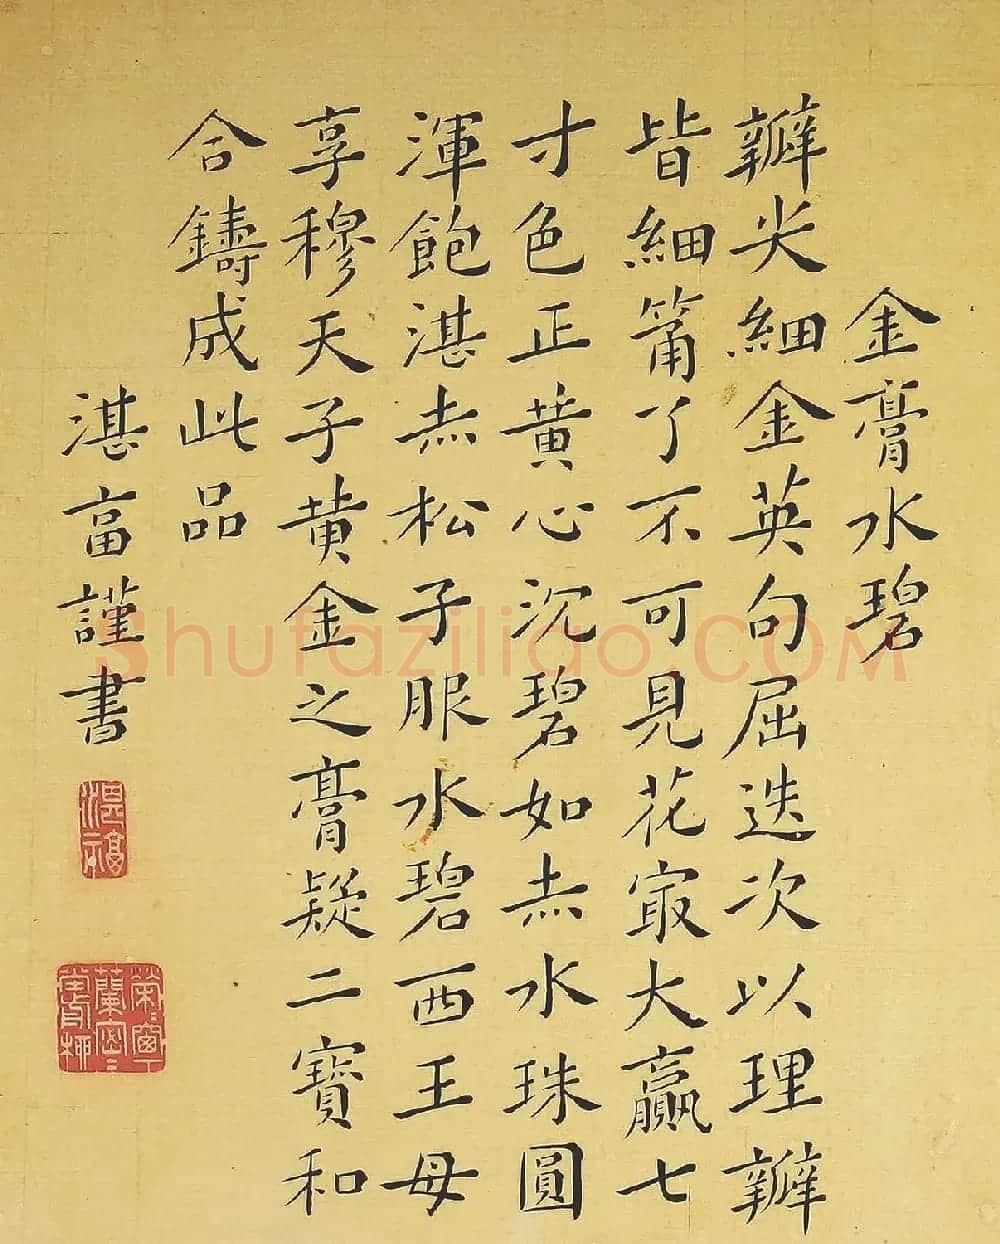 金膏水碧
瓣尖細金英句屈迭次以理瓣
皆細筩了不可見花冣大贏七
寸色正黄心沉碧如赤水珠圓
渾飽湛赤松子服水碧西王母
享穆天子黄金之膏疑二寶和
合鑄成此品
湛富謹書
湛福
Shufaziliao.COM